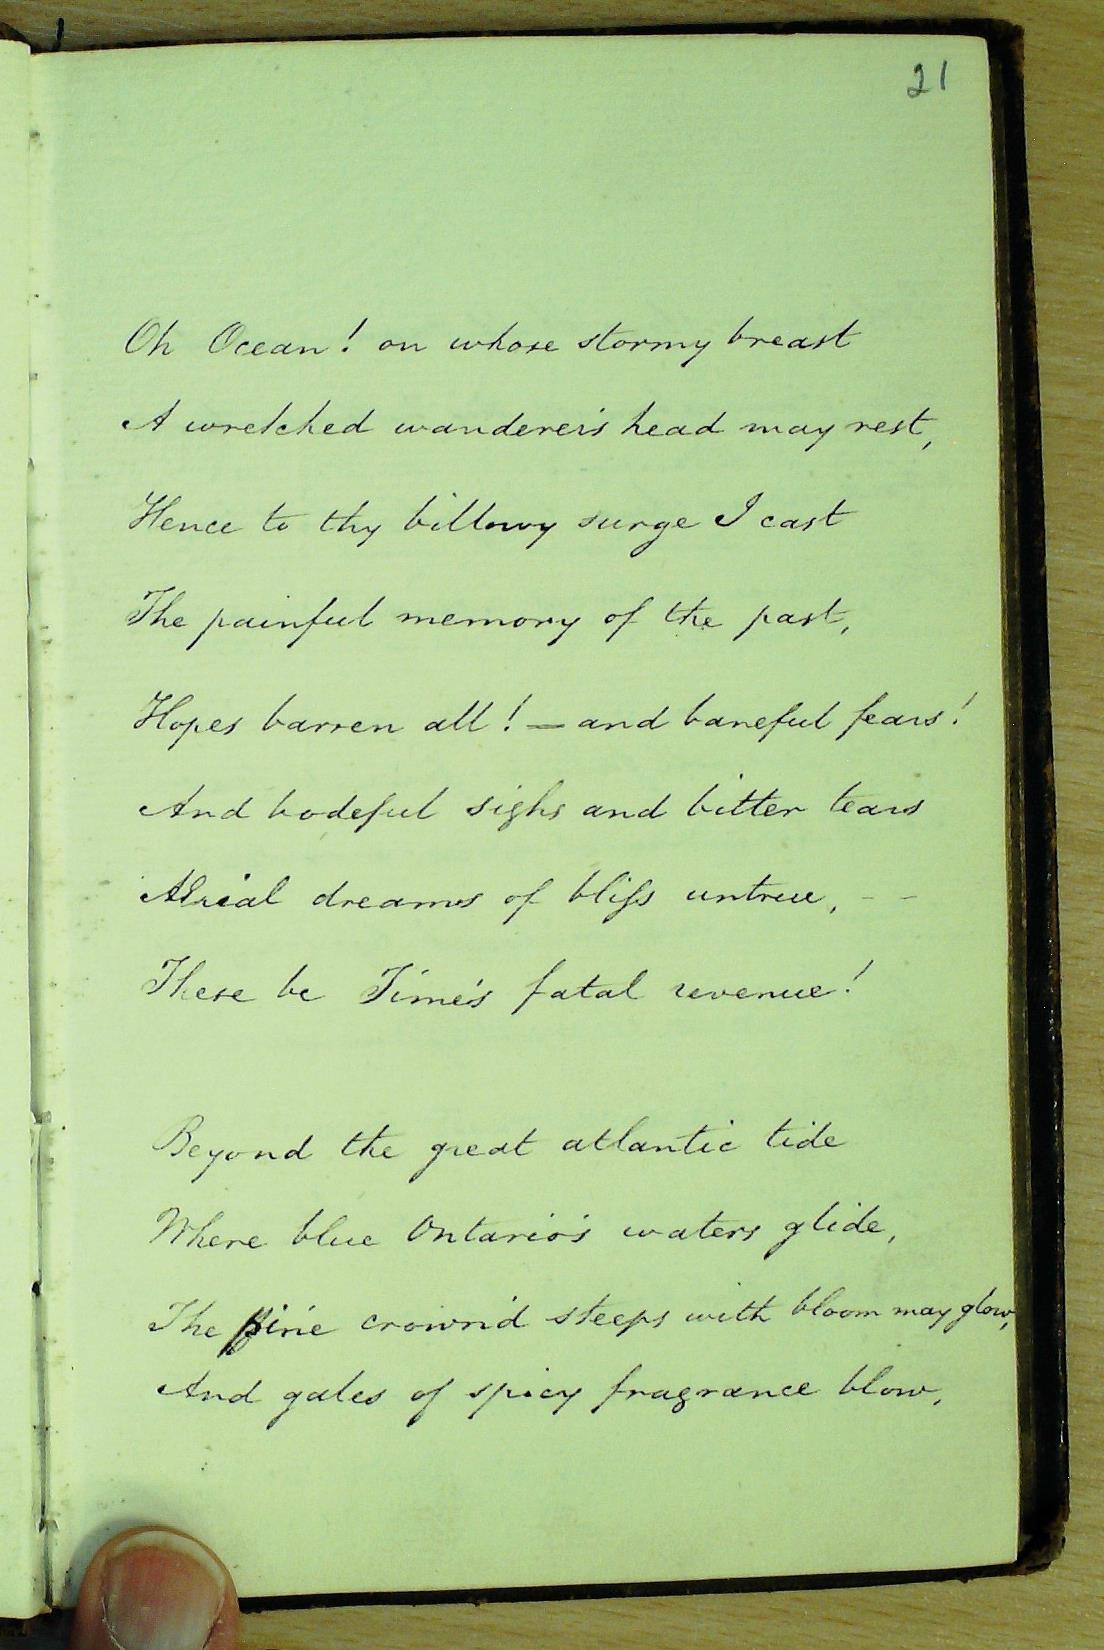 21
Oh Ocean! on whose stormy breast
A wretched wanderer's head may rest,
Hence to thy billowy surge I cast
The painful memory of the past,
Hopes barren all! — and baneful fears!
And bodeful sighs and bitter tears
Aërial dreams of bliſs untrue, – –
These be Time's fatal revenue!
Beyond the great atlantic tide
Where blue Ontario's waters glide,
The pine crown'd steeps with bloom may glow,
And gales of spicy fragrance blow,